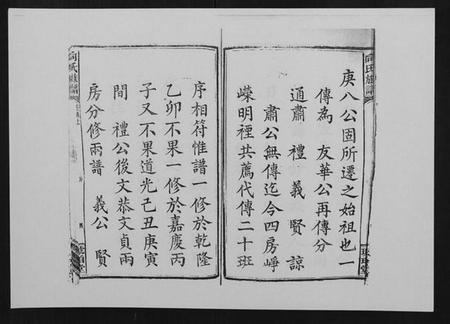 庚八公固所遷之始祖也一
傳為 友華公再傳分
通肅 禮 義 賢 諒
肅公無傳迄今四房崢
嶸明裡共薦代傳二十班
序相符惟譜一修於乾隆
乙卯不果一修於嘉慶丙
子又不果道光己丑庚寅
間 禮公後文恭文貞兩
房分修兩譜 義公 賢
向氏族譜
向氏族譜